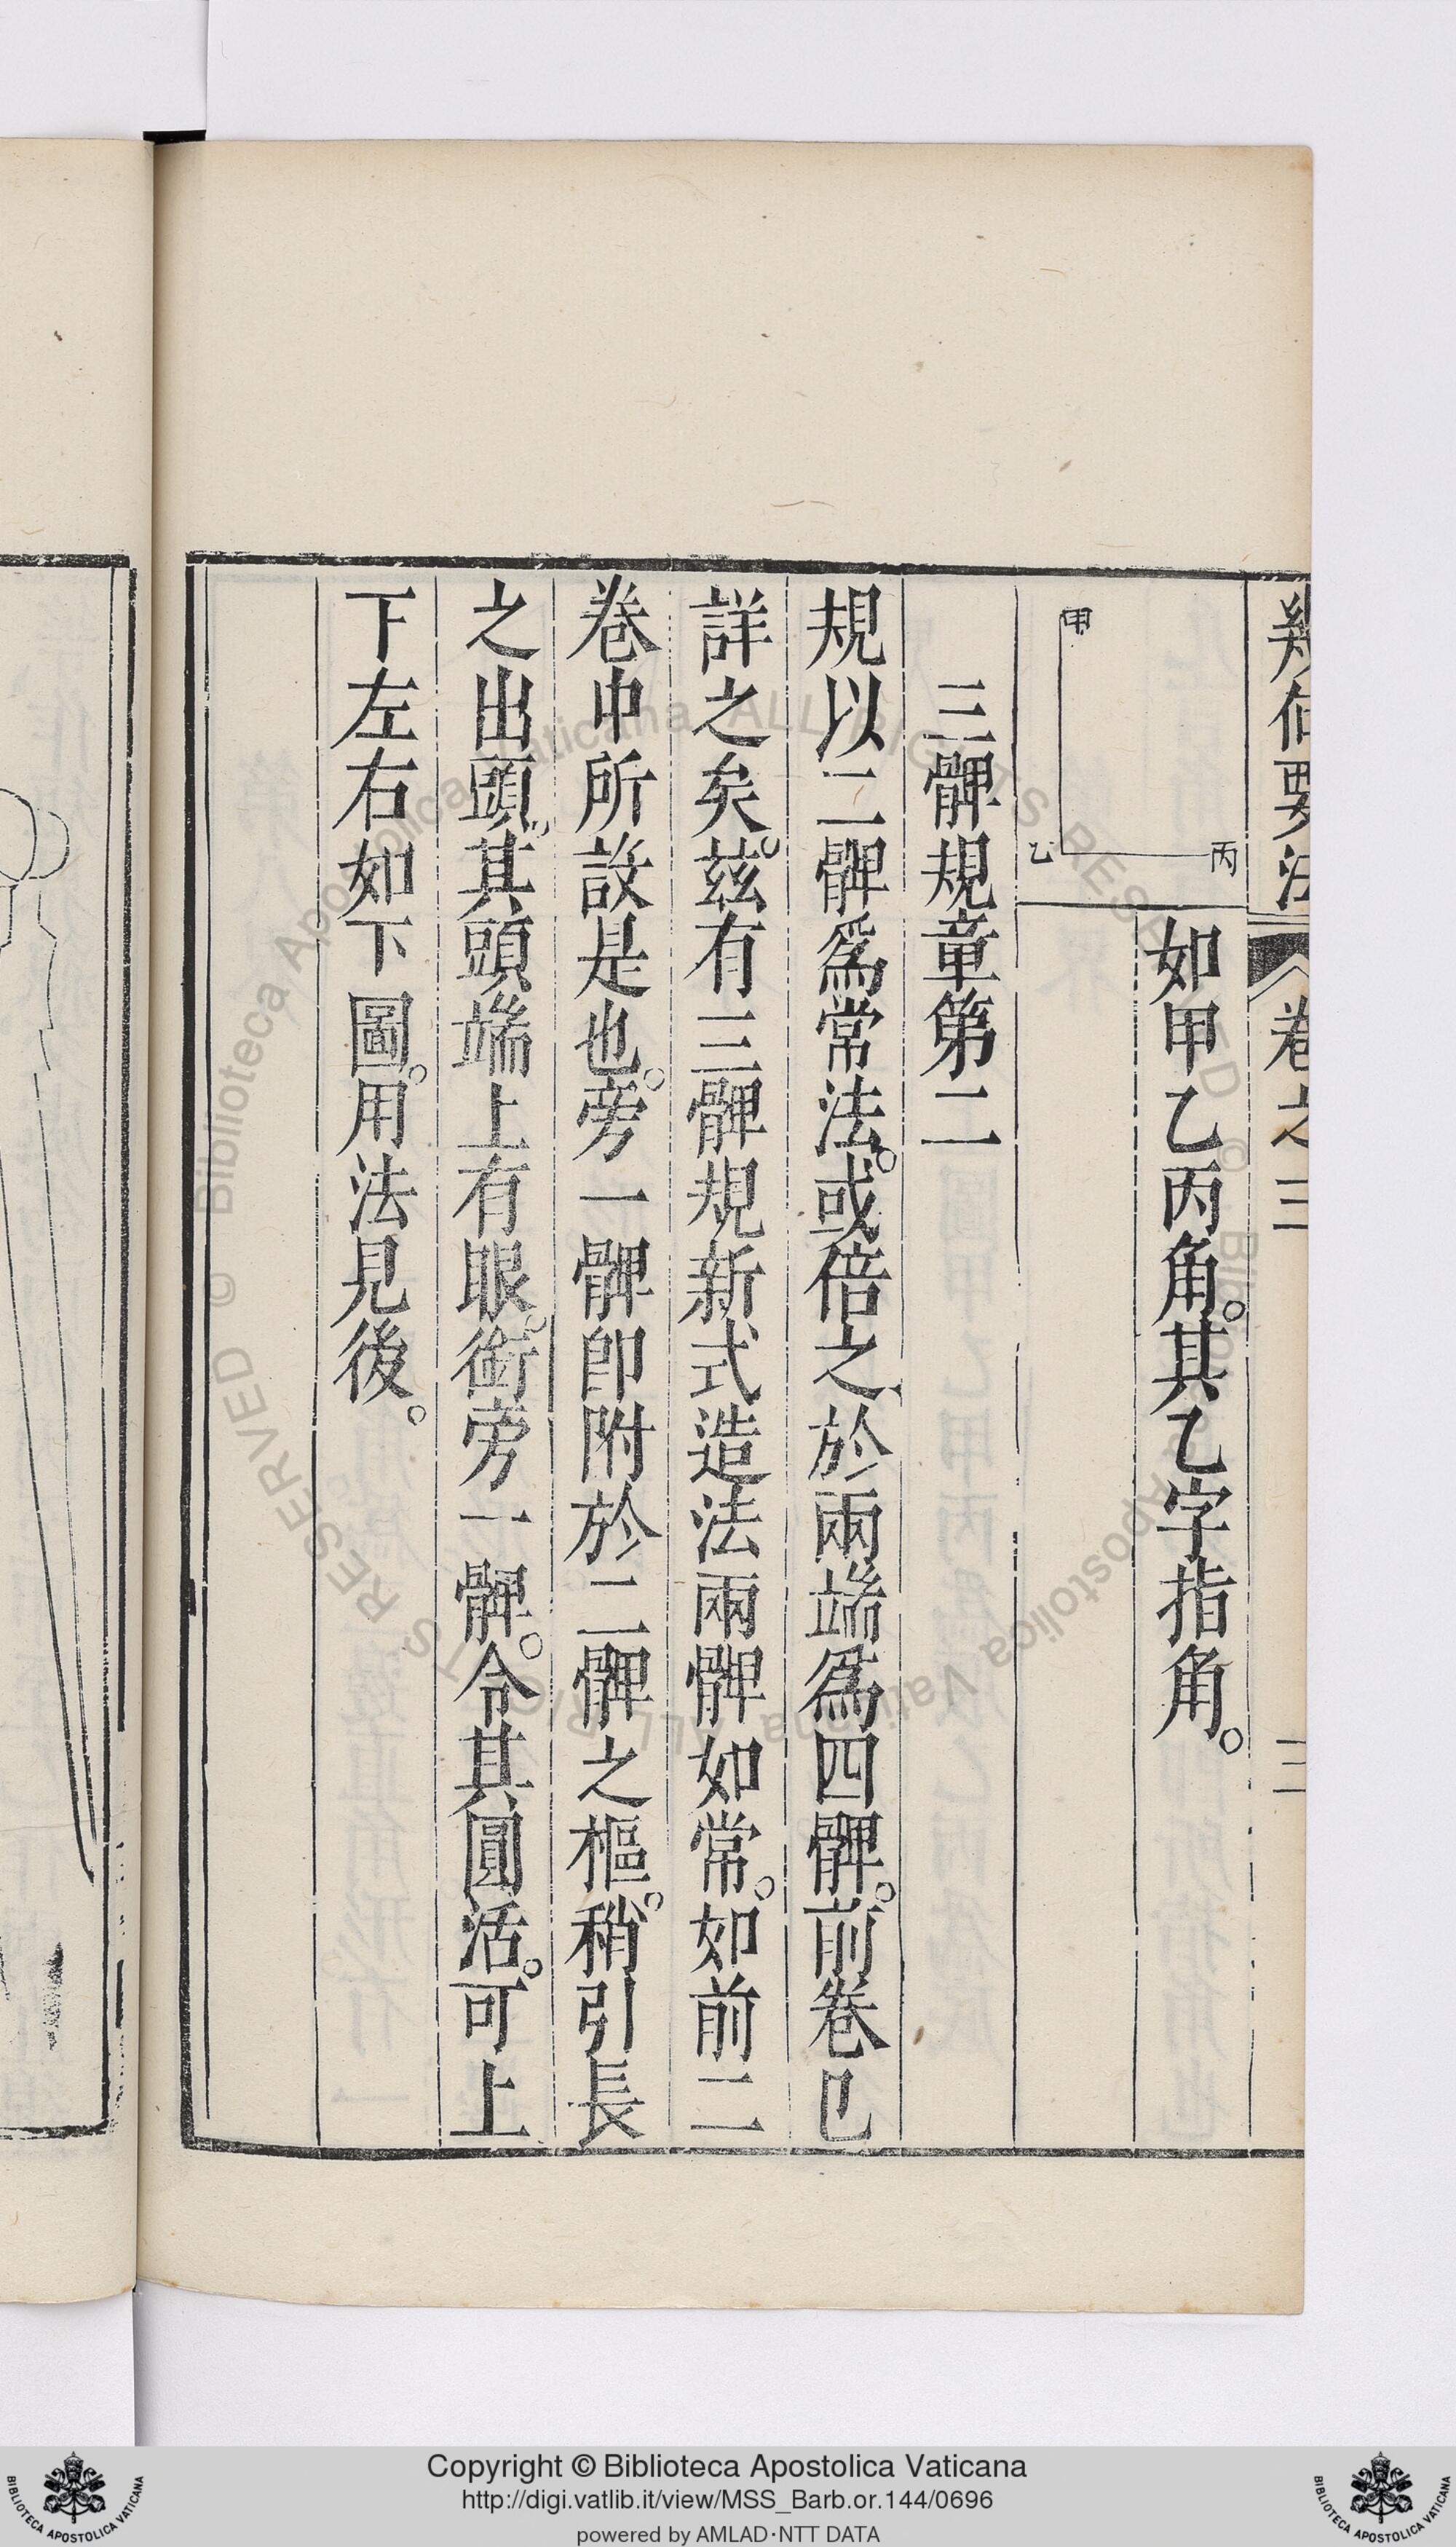 幾何要法 卷之三 三
甲
乙
丙
如甲乙丙角。其乙字指角。
三髀規章第二
規以二髀爲常法。或倍之於兩端爲四髀。前卷已
詳之矣。茲有三髀規新式造法兩髀如常。如前二
卷中所設是也。旁一髀卽附於二髀之樞。稍引長
之出頭。其頭端上有眼。銜旁一髀。令其圓活。可上
下左右如下圖。用法見後。
Copyright © Biblioteca Apostolica Vaticana
http://digi.vatlib.it/view/MSS_Barb.or.144/0696
powered by AMLAD·NTT DATA
BIBLIOTECA APOSTOLICA VATICANA
BIBLIOTECA APOSTOLICA VATICANA